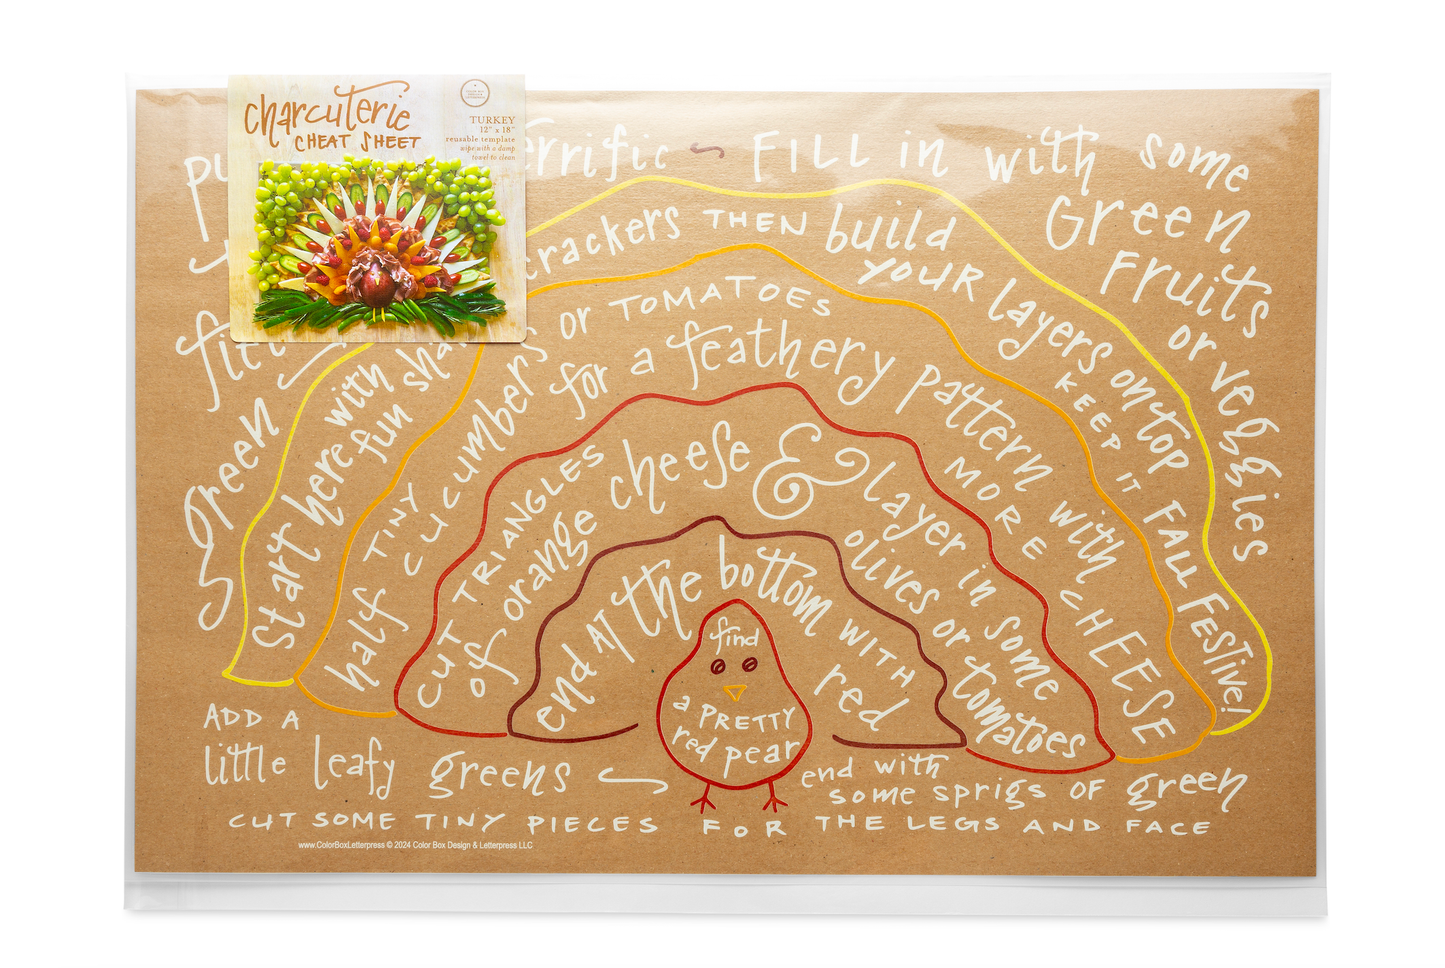 charcuterie
CHEAT SHEET
TURKEY
12" x 18"
reusable template
wipe with a damp
towel to clean
FILL in with some
Green
Fruits
or veggies
green
Start here with
fun
crackers THEN build
YOUR layers on top
KEEP IT FALL FESTIVE!
half TINY
cucumbers or TOMATOES
for a feathery pattern with
MORE CHEESE
CUT TRIANGLES
of orange cheese & layer in some
olives or tomatoes
end AT the bottom WITH
red
find
a PRETTY
red pear
ADD A
little leafy greens
end with
some sprigs OF green
CUT SOME TINY PIECES FOR THE LEGS AND FACE
www.ColorBoxLetterpress © 2024 Color Box Design & Letterpress LLC